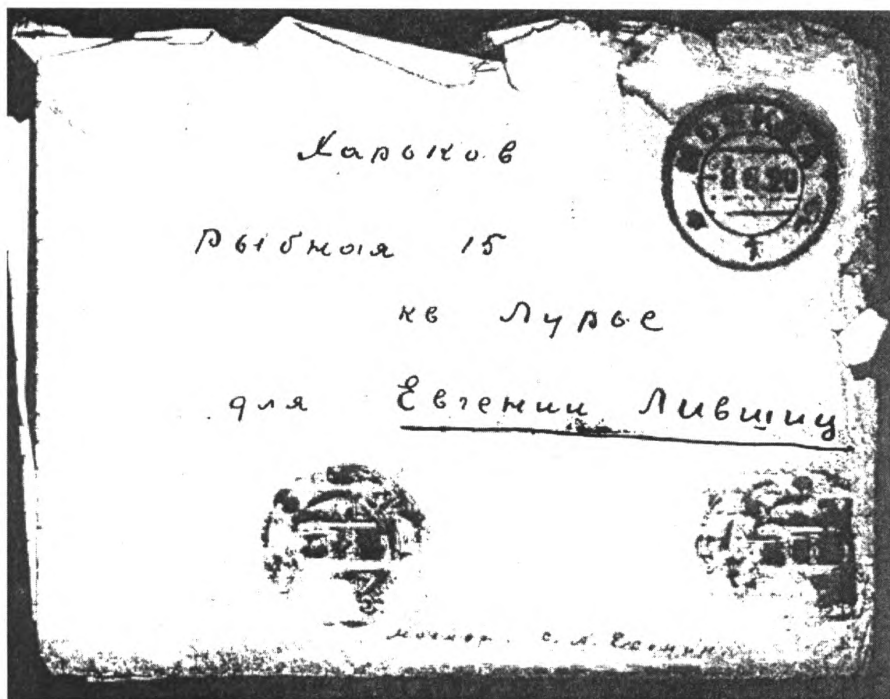 Харьков
Рыбная 15
кв Лурье
для Евгении Лившиц
МОСКВА
С. А. Есенин